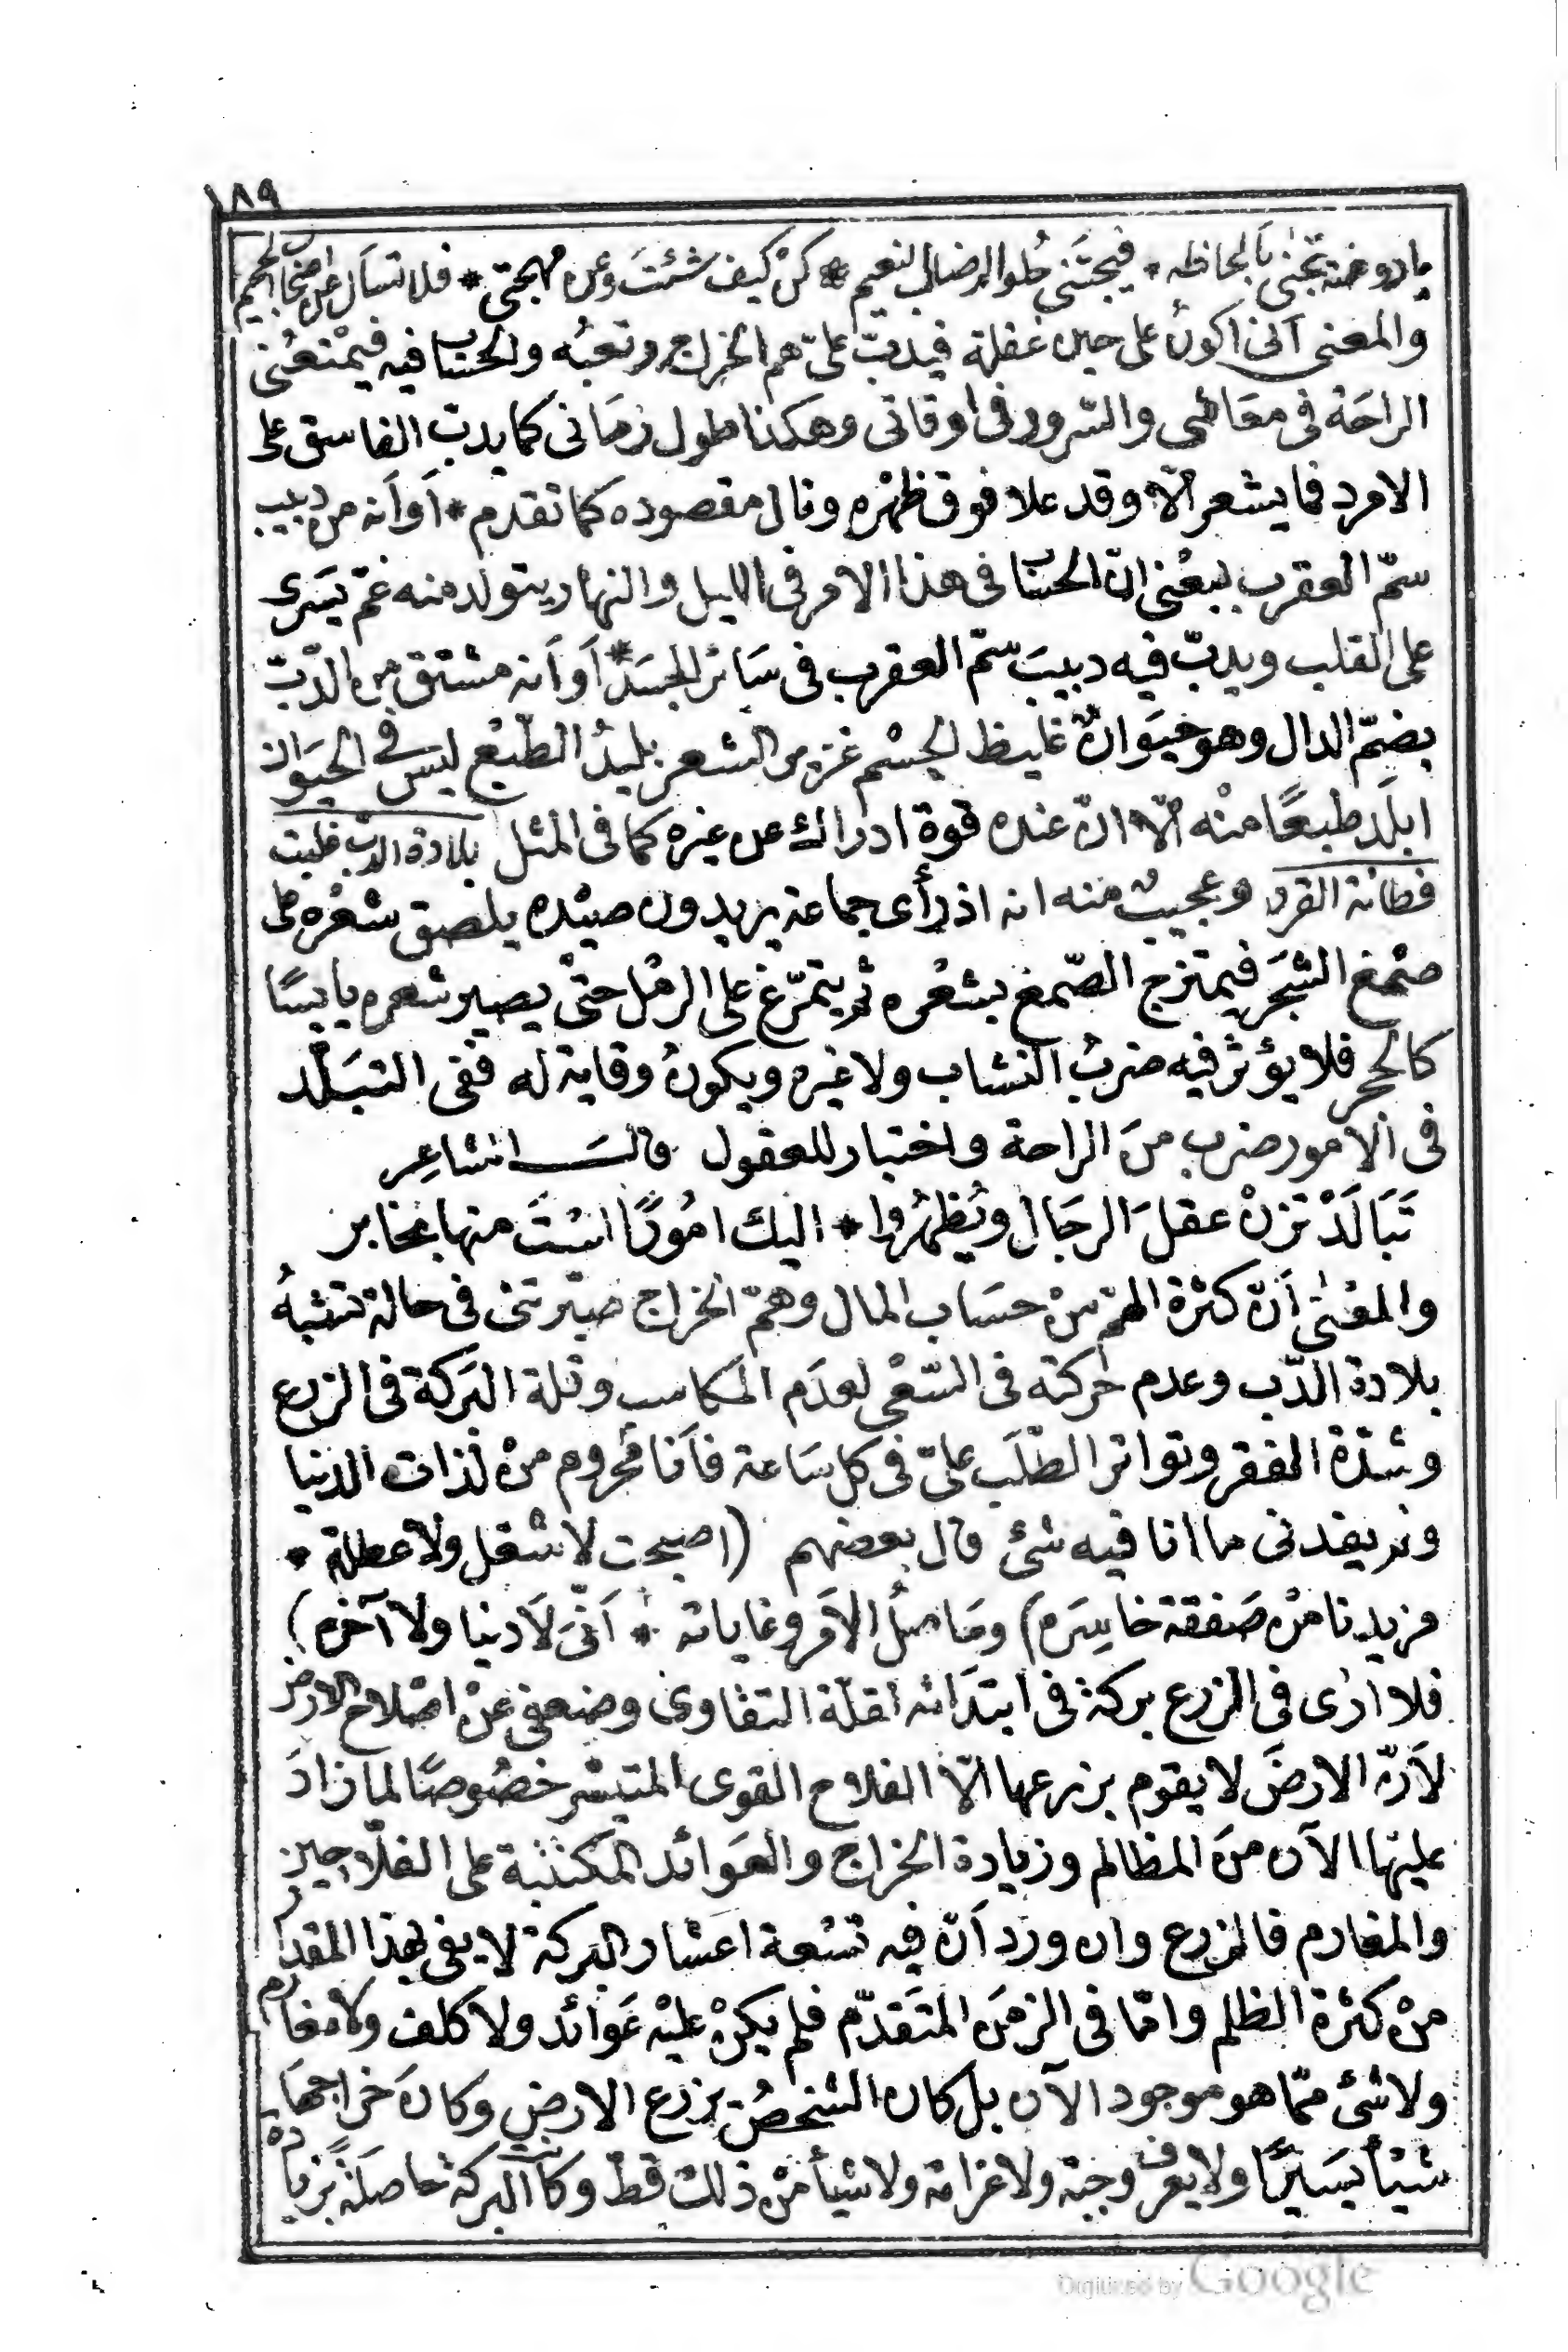 ١٨٩
يا روضة تجنى بألحاظه * فيجتنى حلو الرضاب النعيم * كن كيف شئت وعن مهجتى * فلا تسأل عن اصحاب الجحيم
والمعنى أنى اكونُ على حين غفلة فيدبّ علىّ هم الخراج وتعبُه والحساب فيه فيمْنعُنى
الراحَة فى معَاشى والسّرور فى اوقاتى وهكذا طول زمَانى كما يدبّ الفاسق على
الامرد فما يشعر الّا وقد علا فوق ظهْره ونال مقصوده كما تقدم * أو أنه من دبيب
سمّ العقرب بمعْنى انّ الحساب فى هذا الامر فى الليل والنهار يتولد منه غمّ يَسرى
على القلب ويدبّ فيه دبيبَ سمّ العقرب فى سَائر الجسَد * أو أنه مشتق من الدّبّ
بضمّ الدال وهو حيَوانٌ غليظ الجسْم غزير الشعر بليدُ الطبْع ليس فى الحيَوان
ابلَد طبعًا منْه الّا انّ عنده قوة ادراك عن غيره كما فى المثل بلادة الدب غلبت
فطانة القرد وعجيبٌ منه انه اذ رأى جماعة يريدون صيْده يلصق شعْره على
صمْغ الشجَر فيمتزج الصّمغ بشعْره ثم يتمرّغ على الرمْل حتىْ يصير شعره يابسًا
كالحجر فلا يؤثر فيه ضربُ النشاب ولا غيره ويكونُ وقاية له ففى التبَلّد
فى الأمور ضرب منَ الراحة واختبار للعقول قال الشاعِر
تَبَالَدْ تزنْ عقلَ الرجَال ويُظهرُوا * اليك امُورًا لسْتَ منها بخابر
والمعْنىٰ أنّ كثرة الهمّ منْ حسَاب المال وهمّ الخراج صيّرتنى فى حالة تشبهُ
بلادة الدّب وعدم حَركته فى السّعْى لعدَم المكاسب وقلة البَركة فى الزرع
وشدّة الفقر وتواتر الطّلَب علىّ فى كل سَاعة فأنا مَحْروم منْ لذات الدنيا
ولم يفدنى ما انا فيه شئ قال بعضهم (اصبحت لا شغل ولا عطلة *
مزيدنا منْ صَفقة خاسِرَه) وحَاصلُ الأمر وغاياته * أنّىَ لَا دنيا ولا آخره)
فلا ارٰى فى الزرع بركة فى ابتدَائه لقلّة التقاوى وضعفى عنْ اصْلاح الارض
لأنّ الارضَ لا يقوم بزرعها الّا الفلاح القوى المتيسّر خصُوصًا لما زادَ
عليْها الآن منَ المظالم وزيادة الخراج والعَوائد المكتتبة على الفلّاحين
والمغارم فالزرع وان ورَد أنّ فيه تسْعة اعشار البركة لا يفى بهذا المقدار
منْ كثرة الظلم وامّا فى الزمَن المتَقدّم فلم يكنْ عليْه عَوائد ولا كلف ولا مغارم
ولا شئ ممّا هو موجود الآن بل كان الشخصُ يزرع الارض وكانَ خراجهَا
شيْأ يسَيرًا ولا يعرف وجبة ولا غرامة ولا شيأ منْ ذلك قطّ وكانت البركة حاصلَة بزيادة
Digitized by Google